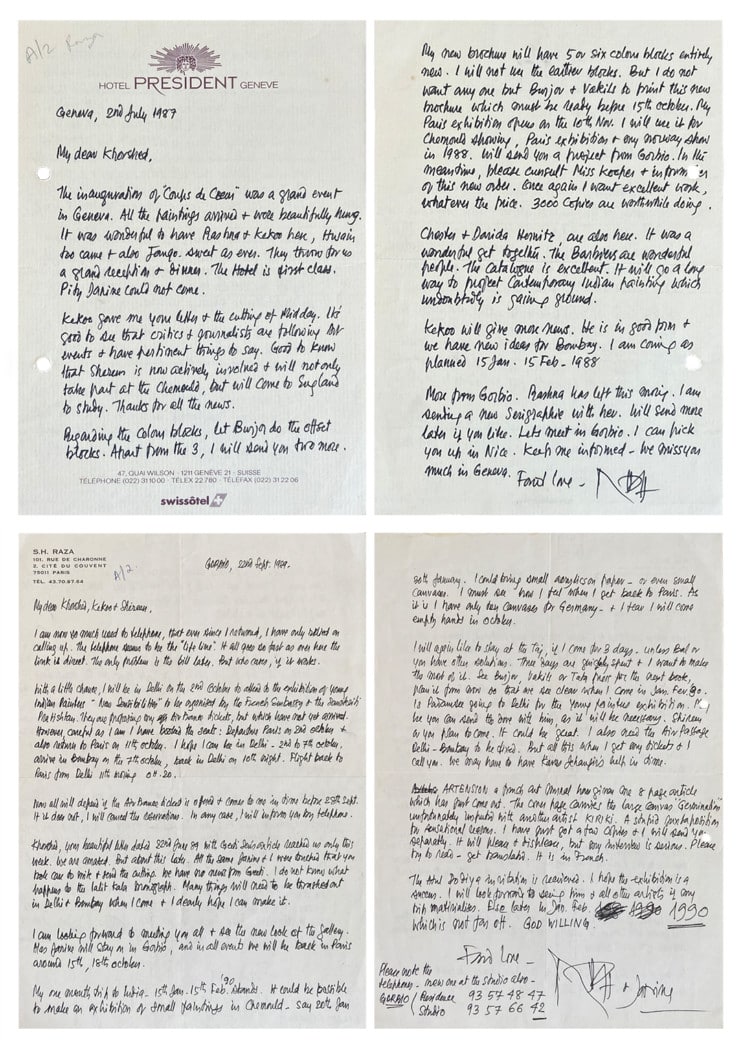 A/2 Raza
HOTEL PRESIDENT GENEVE
Geneva, 2nd July 1987
My dear Khorshed,
The inauguration of "Coups de Coeur" was a grand event
in Geneva. All the paintings arrived & were beautifully hung.
It was wonderful to have Rashna & Kekoo here, Husain
too came & also Jango. Sweet as ever. They throw for us
a grand reception & dinner. The Hotel is first class.
Pity Janine could not come.
Kekoo gave me your letter & the cutting of Midday. It's
good to see that critics & journalists are following
events & have pertinent things to say. Good to know
that Shereen is now actively involved & will not only
take part at the Chemould, but will come to England
to study. Thanks for all the news.
Regarding the Colour blocks, let Burjor do the offset
blocks. Apart from the 3, I will send you two more.
47, QUAI WILSON · 1211 GENÈVE 21 · SUISSE
TÉLÉPHONE (022) 31 10 00 · TÉLEX 22 780 · TÉLÉFAX (022) 31 22 06
swissôtel
My new brochure will have 5 or six colour blocks entirely
new. I will not use the earlier blocks. But I do not
want any one but Burjor & Vakils to print this new
brochure which must be ready before 15th October. My
Paris exhibition opens on the 10th Nov. I will use it for
Chemould showing, Paris exhibition & my norway show
in 1988. Will send you a project from Gorbio. In the
meantime, please consult Miss Kooper & inform her
of this new order. Once again I want excellent work,
whatever the price. 3000 Copies are worthwhile doing.
Chester & Davida Herwitz, are also here. It was a
wonderful get together. The Barbiers are wonderful
people. The Catalogue is excellent. It will go a long
way to project Contemporary Indian painting which
undoubtedly is gaining ground.
Kekoo will give more news. He is in good form &
we have new ideas for Bombay. I am coming as
planned 15 Jan. 15 Feb - 1988
More from Gorbio. Rashna has left this morning. I am
sending a new Serigraphie with her. Will send more
later if you like. Lets meet in Gorbio. I can pick
you up in Nice. Keep me informed - We miss you
much in Geneva. Fond love -
S.H. RAZA
101, RUE DE CHARONNE
2, CITÉ DU COUVENT
75011 PARIS
TÉL. 43.70.97.64
A/2.
GORBIO, 22nd Sept. 1989.
My dear Khorshed, Kekoo & Shereen,
I am now so much used to telephone, that ever since I returned, I have only relied on
calling up. The telephone seems to be the "life line". It all goes so fast as over here the
link is direct. The only problem is the bill later. But who cares, if it works.
With a little chance, I will be in Delhi on the 2nd October to attend to the exhibition of young
Indian Painters - "New Sensibilities" to be organised by the French Embassy &
They are proposing my Air France tickets, but which have not yet arrived.
However, careful as I am I have booked the seats: Departure Paris on 2nd october &
also return to Paris on 11th october. I hope I can be in Delhi - 2nd to 7th october,
arrive in Bombay on the 7th october, back in Delhi on 10th night. Flight back to
Paris from Delhi 11th morning 04.20.
Now all will depend if the Air France ticket is offered & comes to me in time before 28th Sept.
If it does not, I will cancel the reservations. In any case, I will inform you by telephone.
Khorshed, your beautiful letter dated 22nd July 89 with Geeti Sen's article reached us only this
week. We are amazed. But about this later. All the same Janine & I were touched that you
took care to write & send the cutting. We have no news from Geeti. I do not know what
happens to the Lalit Kala Monograph. Many things will need to be thrashed out
in Delhi & Bombay when I come & I dearly hope I can make it.
I am looking forward to meeting you all & see the new look of the Gallery.
Janine will stay on in Gorbio, and in all events we will be back in Paris
around 15th, 18th october.
My one month trip to India - 15th Jan. 15th Feb. '90. stands. It could be possible
to make an exhibition of small paintings in Chemould - say 20th Jan
30th January. I could bring small acrylics on paper - or even small
canvases. I must see how I feel when I get back to Paris. As
it is I have only ten canvases for Germany - & I fear I will come
empty hands in october.
I will again like to stay at the Taj, if I come for 3 days - unless Bal or
you have other solutions. Three days are quickly spent & I want to make
the most of it. See Burjor, Vakils or Tata press for the next book,
plan it from now so that we see clear when I come in Jan. Feb. 90.
Is going to Delhi for the young painters exhibition.
be you can send the dove with him, as it will be necessary. Shireen
or you plan to come. It could be great. I also need the Air Passage
Delhi - Bombay to be fixed. But all this when I get my tickets & I
call you. We may have to have help in time.
ARTENSION a french art Journal has given one 8 page article
which has just come out. The cover page carries the large canvas "Germination"
unfortunately imputed with another artist KIRIKI. A stupid juxtaposition
for sensational reasons. I have just got a few copies & I will send you
separately. It will please & displease, but my interview is serious. Please
try to read - get translated. It is in French.
The invitation is received. I hope the exhibition is a
success. I will look forward to seeing him & all other artists if my
trip materialises. Else later in Jan. Feb. 1990
which is not far off. GOD WILLING.
Fond love -
& Janine
Please note the
telephones - now one at the studio also -
GORBIO / Residence 93 57 48 47
Studio 93 57 66 42